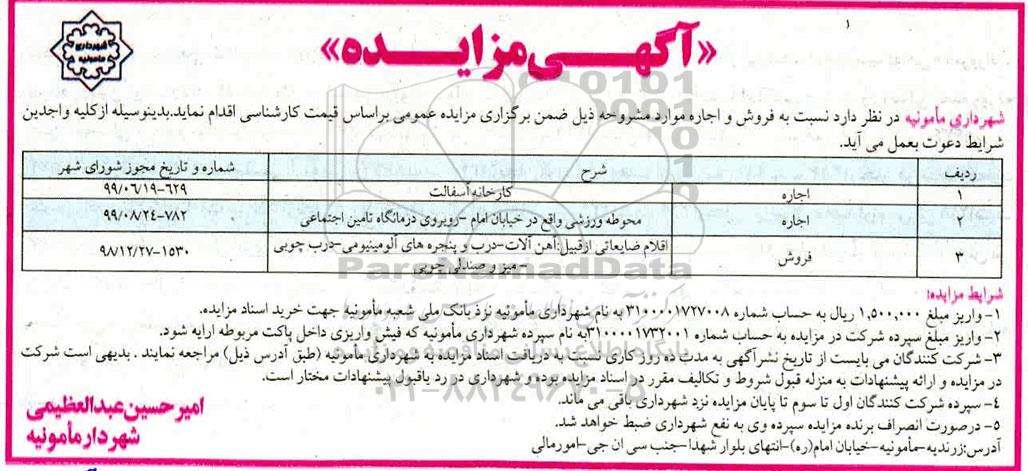 ۱
«آگهی مزایده»
شهرداری مأمونیه
شهرداری مأمونیه در نظر دارد نسبت به فروش و اجاره موارد مشروحه ذیل ضمن برگزاری مزایده عمومی براساس قیمت کارشناسی اقدام نماید.بدینوسیله ازکلیه واجدین
شرایط دعوت بعمل می آید.
ردیف شرح شماره و تاریخ مجوز شورای شهر
۱ اجاره کارخانه آسفالت ۶۲۹-۹۹/۰۶/۱۹
۲ اجاره محوطه ورزشی واقع در خیابان امام -روبروی درمانگاه تامین اجتماعی ۷۸۲-۹۹/۰۸/۲۴
۳ فروش اقلام ضایعاتی ازقبیل:آهن آلات-درب و پنجره های آلومینیومی-درب چوبی ۱۵۳۰-۹۸/۱۲/۲۷
-میز و صندلی چوبی
ParsNamadData
شرایط مزایده:
۱- واریز مبلغ ۱,۵۰۰,۰۰۰ ریال به حساب شماره ۳۱۰۰۰۰۱۷۲۷۰۰۸ به نام شهرداری مأمونیه نزد بانک ملی شعبه مأمونیه جهت خرید اسناد مزایده.
۲- واریز مبلغ سپرده شرکت در مزایده به حساب شماره ۳۱۰۰۰۰۱۷۳۲۰۰۱به نام سپرده شهرداری مأمونیه که فیش واریزی داخل پاکت مربوطه ارایه شود.
۳- شرکت کنندگان می بایست از تاریخ نشرآگهی به مدت ده روز کاری نسبت به دریافت اسناد مزایده به شهرداری مأمونیه (طبق آدرس ذیل) مراجعه نمایند . بدیهی است شرکت
در مزایده و ارائه پیشنهادات به منزله قبول شروط و تکالیف مقرر در اسناد مزایده بوده و شهرداری در رد یاقبول پیشنهادات مختار است.
۰۲۱-۸۸۳۴۹۶۷۰-۵
۴- سپرده شرکت کنندگان اول تا سوم تا پایان مزایده نزد شهرداری باقی می ماند.
۵- درصورت انصراف برنده مزایده سپرده وی به نفع شهرداری ضبط خواهد شد.
آدرس:زرندیه-مأمونیه-خیابان امام(ره)-انتهای بلوار شهدا-جنب سی ان جی-امورمالی
امیرحسین عبدالعظیمی
شهردار مأمونیه